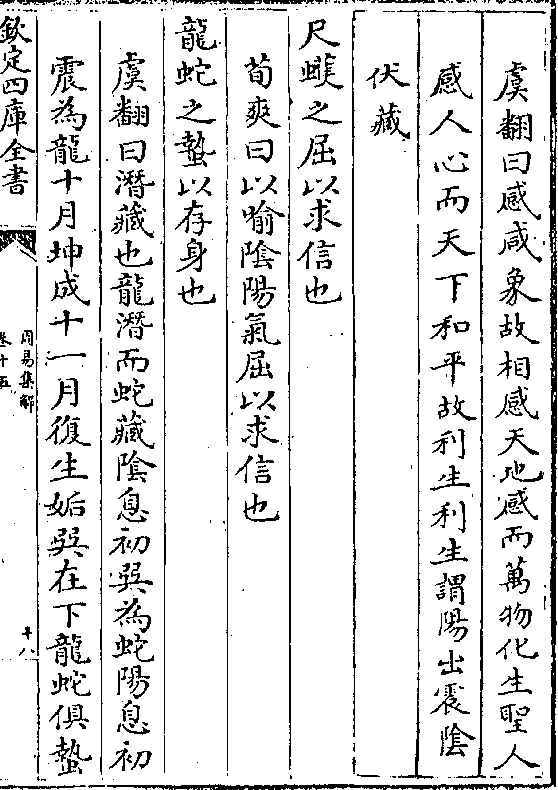 虞翻曰感咸象故相感天地感而萬物化生聖人
感人心而天下和平故利生利生謂陽出震陰
伏藏
尺蠖之屈以求信也
荀爽曰以喻陰陽氣屈以求信也
龍蛇之蟄以存身也
虞翻曰潛藏也龍潛而蛇藏陰息初巽為蛇陽息初
震為龍十月坤成十一月復生姤巽在下龍蛇俱蟄
欽定四庫全書
周易集解
卷十五
十八